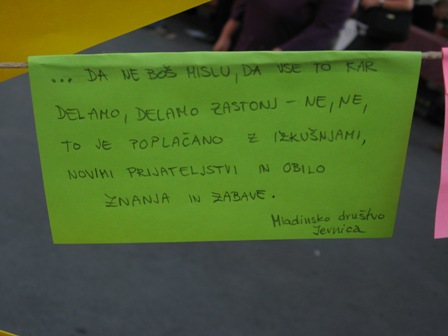 ... DA NE BOŠ MISLU, DA VSE TO KAR
DELAMO, DELAMO ZASTONJ - NE, NE,
TO JE POPLAČANO Z IZKUŠNJAMI,
NOVIMI PRIJATELJSTVI IN OBILO
ZNANJA IN ZABAVE.
Mladinsko društvo
Jevnica